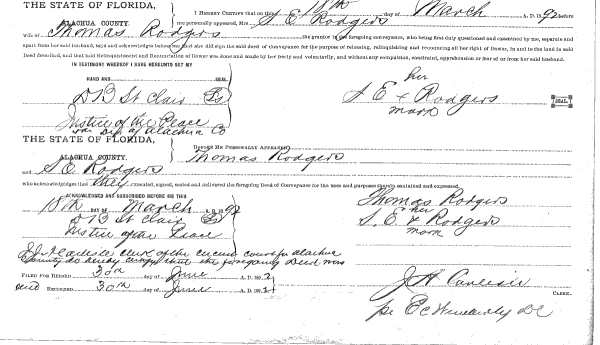 THE STATE OF FLORIDA,
ALACHUA COUNTY.
I HEREBY CERTIFY That on this 18th day of March A. D. 1892 before
me personally appeared, Mrs. S E Rodgers
wife of Thomas Rodgers the grantor in the foregoing conveyance, who being first duly questioned and examined by me, separate and
apart from her said husband, says and acknowledges before me that she did sign the said deed of Conveyance for the purpose of releasing, relinquishing and renouncing all her right of dower, in and to the land in said
Deed described, and that said Relinquishment and Renunciation of Dower was done and made by her freely and voluntarily, and without any compulsion, constraint, apprehension or fear of or from her said husband.
IN TESTIMONY WHEREOF I HAVE HEREUNTO SET MY
HAND AND SEAL
her
D B St Clair
S E x Rodgers
SEAL.
mark
Justice of the Peace
of Alachua Co
THE STATE OF FLORIDA,
ALACHUA COUNTY.
BEFORE ME PERSONALLY APPEARED Thomas Rodgers
and S. E. Rodgers
who acknowledges that they executed, signed, sealed and delivered the foregoing Deed of Conveyance for the uses and purposes therein contained and expressed.
ACKNOWLEDGED AND SUBSCRIBED BEFORE ME THIS
Thomas Rodgers
18th DAY OF March A. D. 1892
her
D B St Clair
S. E. x Rodgers
mark
Justice of the Peace
clerk of the circuit court for Alachua
County do hereby certify that the foregoing Deed was
FILED FOR RECORD 30th day of June A. D. 189
and RECORDED 30th day of June A. D. 189
CLERK.
DC